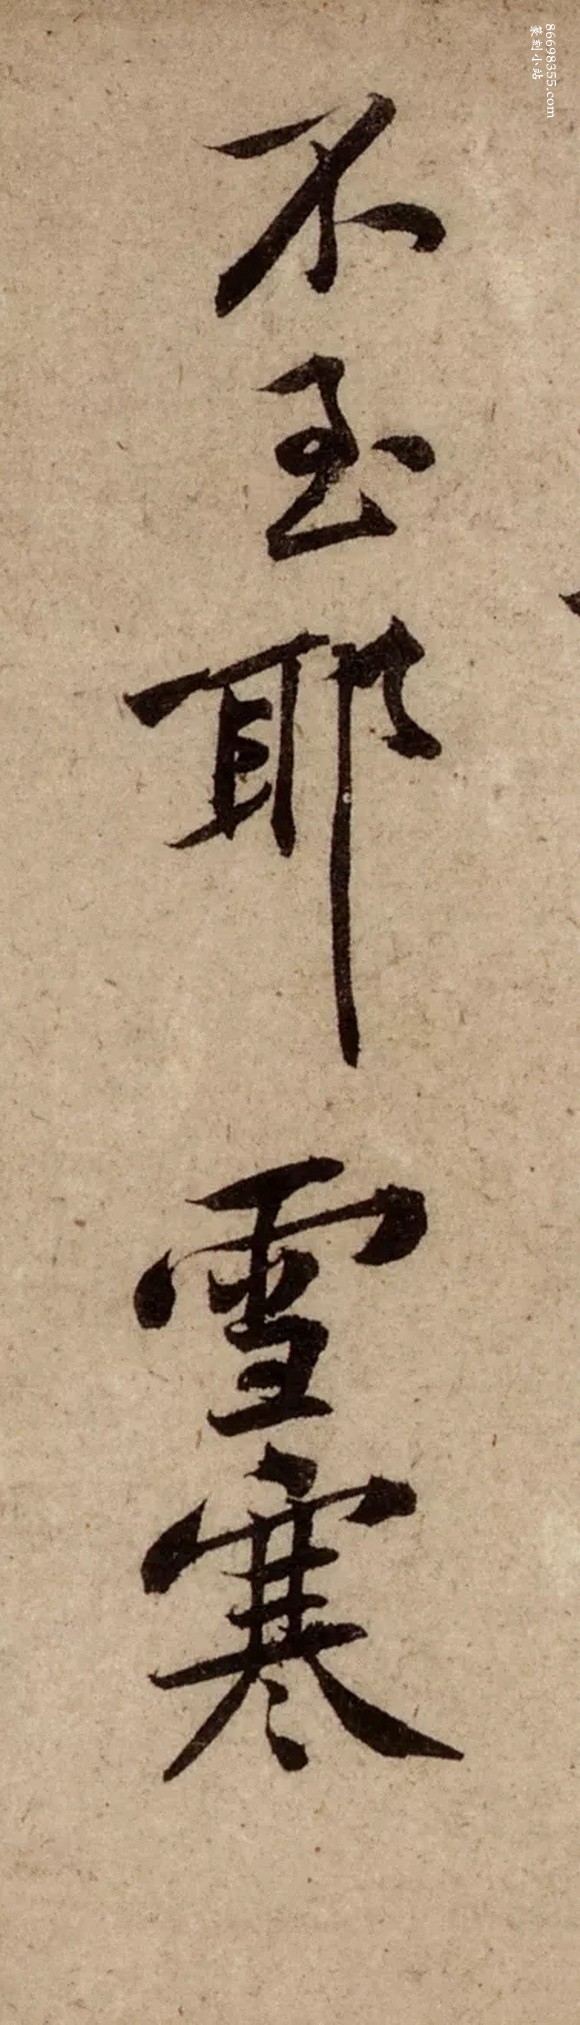 86698355.com
篆刻小站
不至耶 雪寒